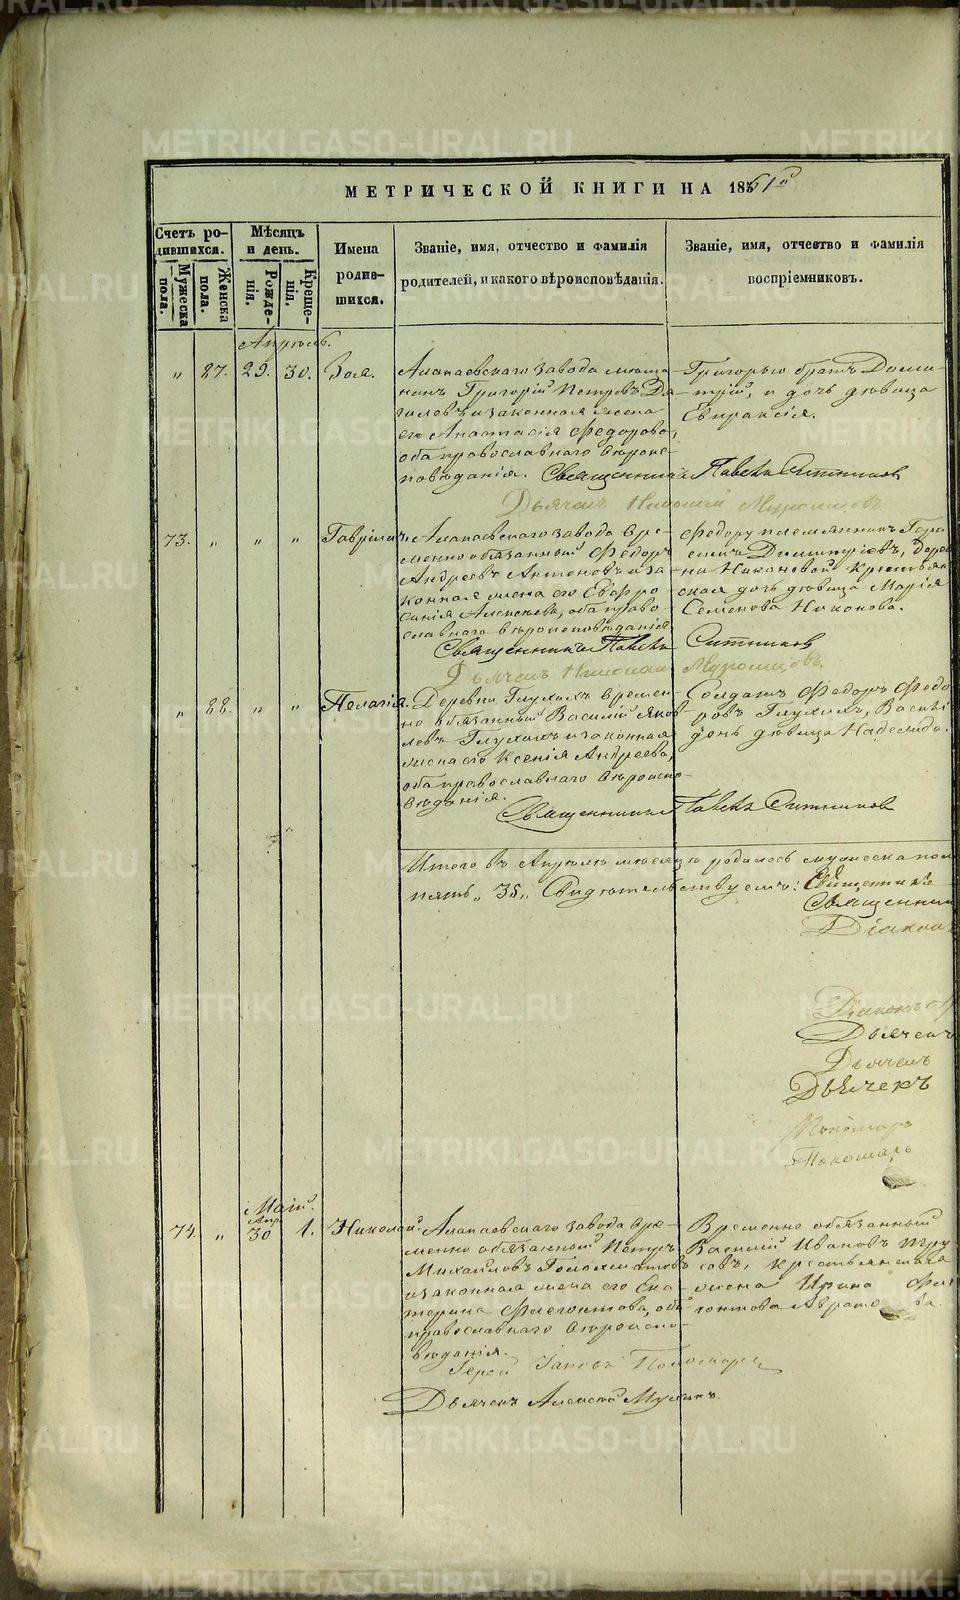 МЕТРИЧЕСКОЙ КНИГИ НА 1861й
Счетъ ро-
дившихся.
Мужеска
пола.
Женска
пола.
Мѣсяцъ
и день.
Рожде-
нія.
Креще-
нія.
Имена
родив-
шихся.
Званіе, имя, отчество и фамилія
родителей, и какого вѣроисповѣданія.
Званіе, имя, отчество и фамилія
воспріемниковъ.
Апрѣль.
" 27. 29. 30. Зоя.
Алапаевскаго завода мѣща
нинъ Григорій Петровъ
и законная жена
его Анастасія Федорова,
оба православнаго вѣроис-
повѣданія. Священникъ Павелъ Ситниковъ
Дьячекъ Николай Муромцовъ
Григорью братъ Дми-
трій, и дочь дѣвица
Евпраксія.
73. " " " Гавріилъ.
Алапаевскаго завода вре-
менно обязанный Федоръ
Андреевъ Антоновъ и за-
конная жена его Евфро
синія Алексѣева, оба право-
славнаго вѣроисповѣданія.
Священникъ Павелъ Ситниковъ
Дьячекъ Николай Муромцовъ
Федору племянникъ Гера
симъ Димитріевъ, дерев
ни Никоновой крестьян
ская дочь дѣвица Марія
Семенова Никонова.
" 28. " " Пелагія.
Деревни Глухихъ времен-
но обязанный Василій Яков
левъ Глухихъ и законная
жена его Ксенія Андреева,
оба православнаго вѣроиспо-
вѣданія.
Священникъ Павелъ Ситниковъ
Солдатъ Федоръ Федо
ровъ Глухихъ, Василі
дочь дѣвица Надежда.
Итого въ Апрѣлѣ мѣсяцѣ родилось мужеска пол
пять „35„ Свидѣтельствуемъ: Священникъ
Священник
Діакон
Діаконъ
Дьячекъ
Дьячекъ
Дьячекъ
Пономарь
Пономарь
Маій.
Апр.
74. " 30 1. Николай
Алапаевскаго завода вре-
менно обязанный Петръ
Михайловъ
и законная жена его Ека-
терина Флегонтова, оба
православнаго вѣроиспо-
вѣданія.
Іерей Іаковъ Пономаревъ
Дьячекъ Алексѣй
Временно обязанный
Василій Ивановъ Тру
совъ, крестьянская
жена Ирина Фле
гонтова